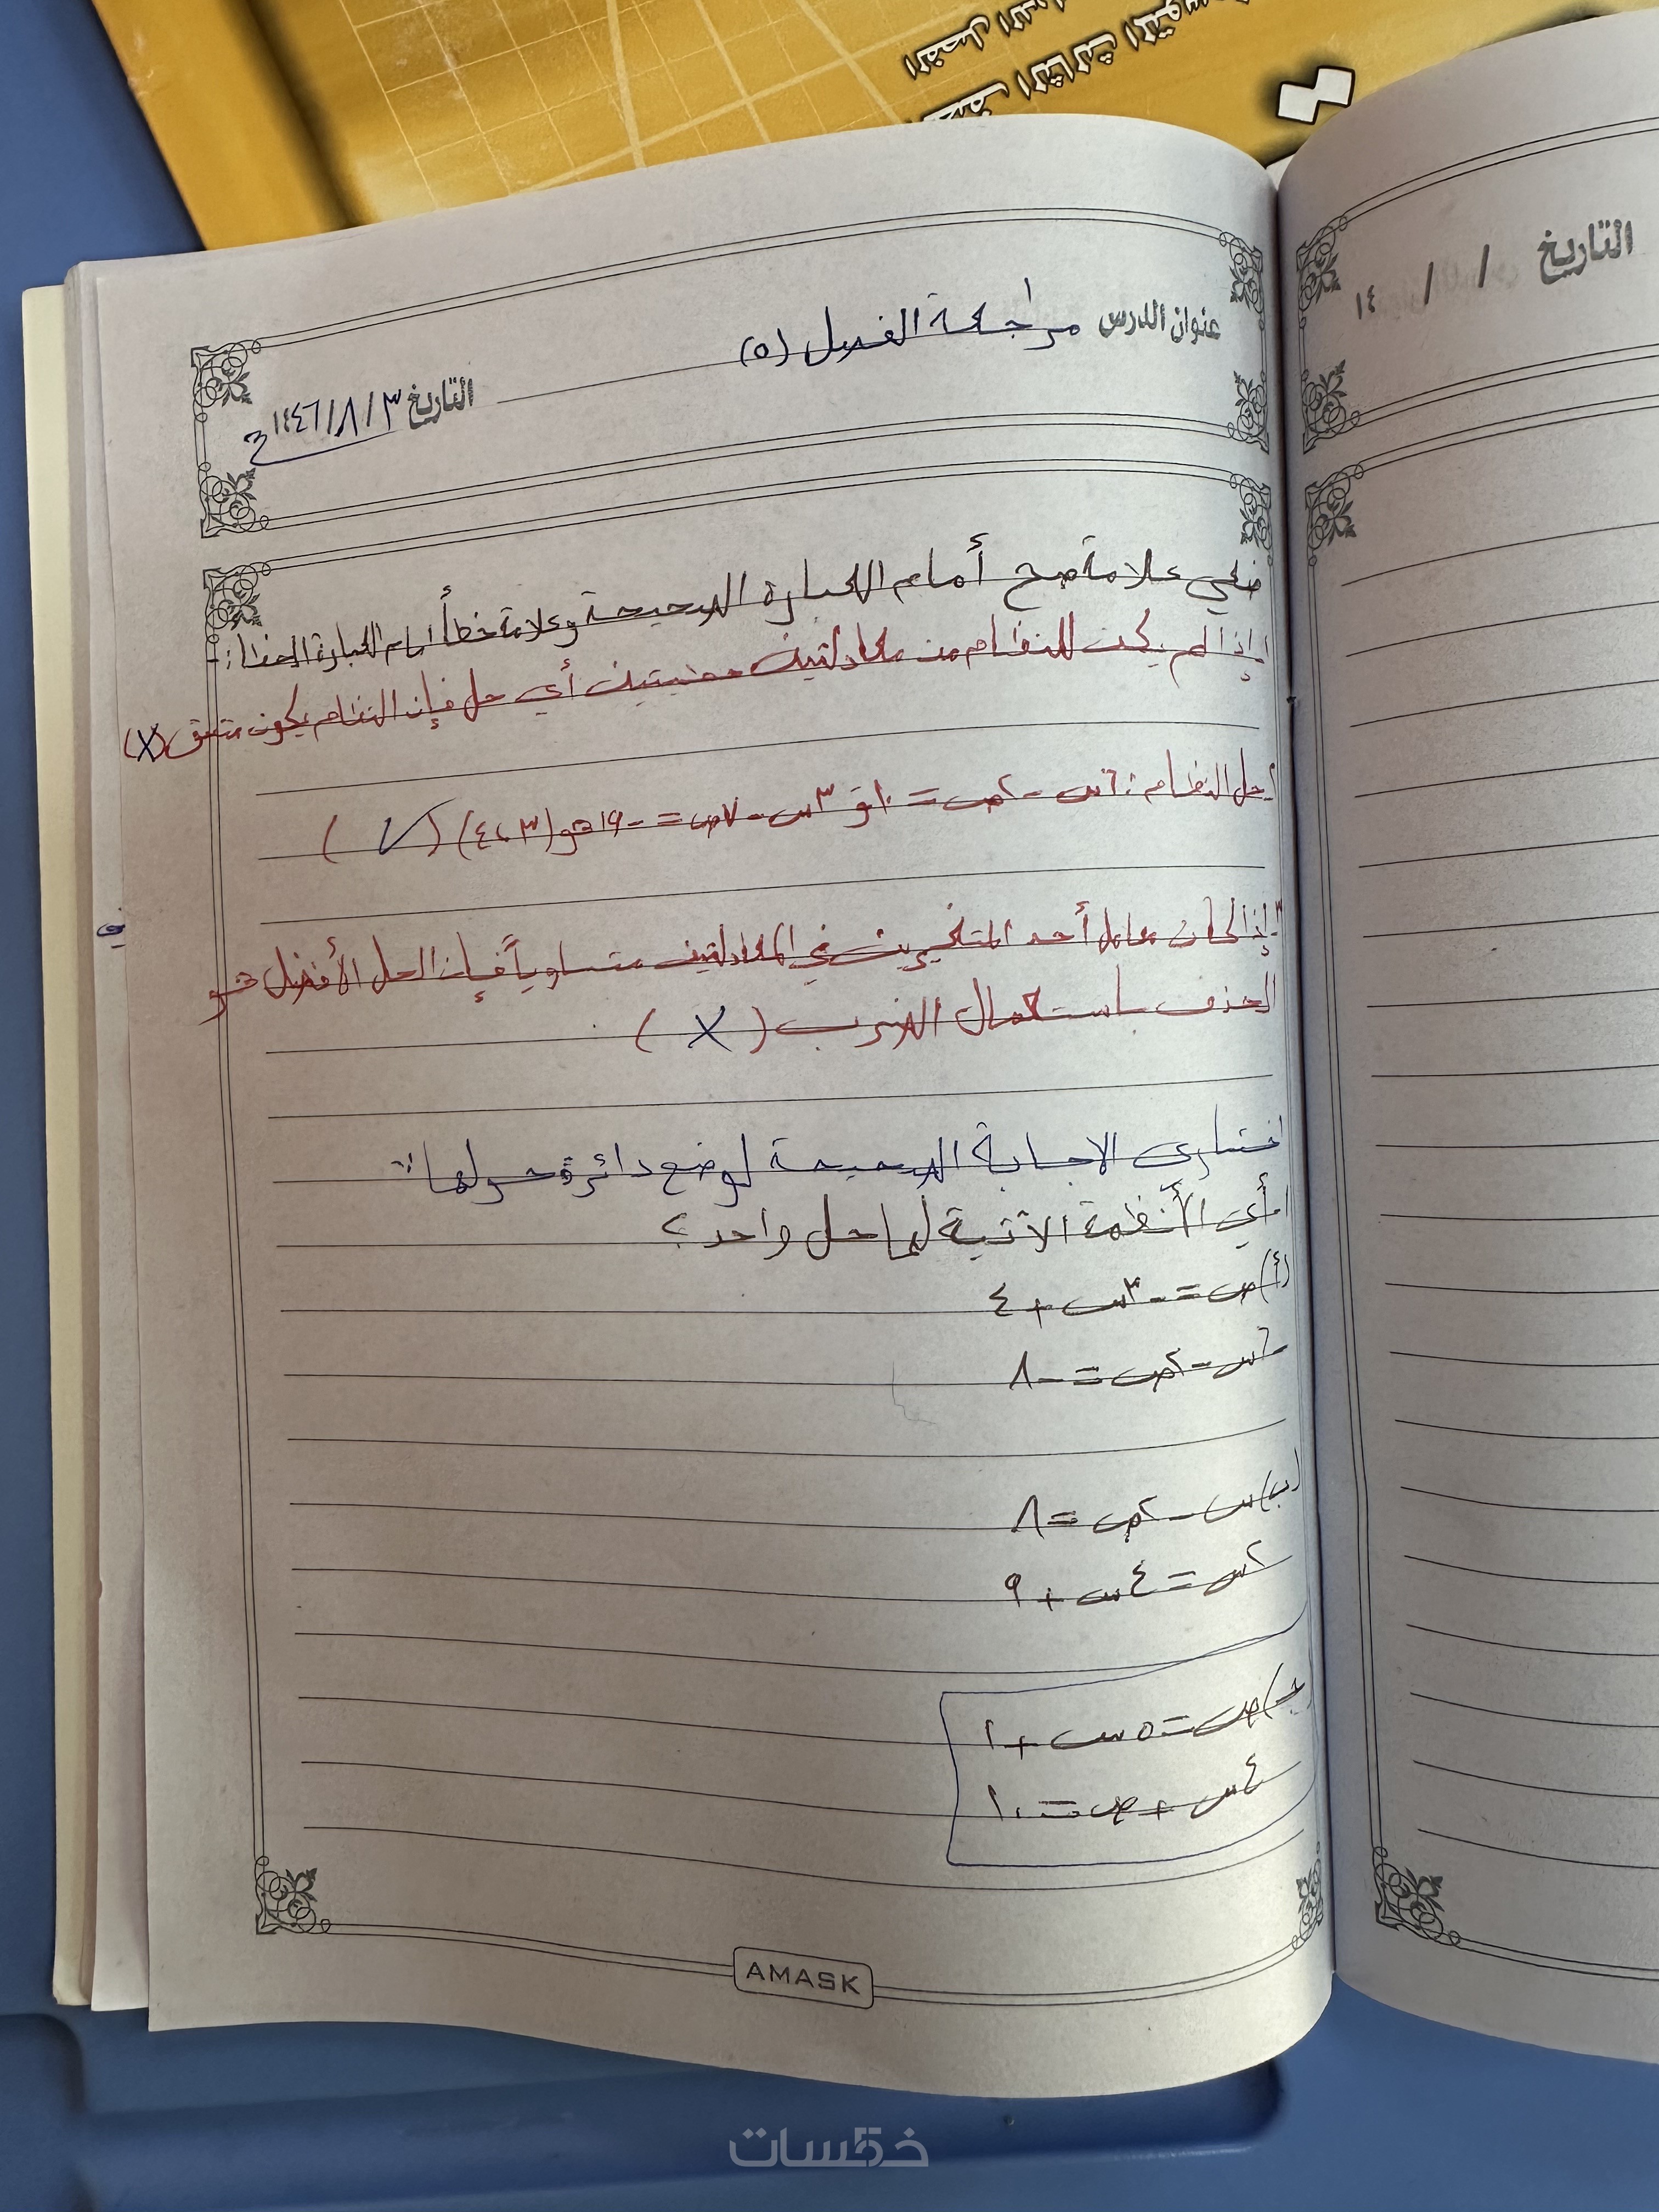 الصف الثالث المتوسط
الفصل الدرا
التاريخ / / ١٤
عنوان الدرس مراجعة الفصل (٥)
التاريخ ٣/٨/١٤٤٦ح
ضعي علامة صح أمام العبارة الصحيحة وعلامة خطأ أمام العبارة الخطأ:-
١- إذا لم يكن للنظام من معادلتين خطيتين أي حل فإن النظام يكون متسق (X)
٢- حل النظام: ٦س - ٢ص = ١٠ و ٣س - ٧ص = -١٩ هو (٣، ٤) (✓)
٣- إذا كان معامل أحد المتغيرين في المعادلتين متساوياً فإن الحل الأفضل هو
الحذف باستعمال الضرب (X)
اختاري الاجابة الصحيحة لوضع دائرة حولها:-
١- أي الأنظمة الآتية لها حل واحد؟
(أ) ص = -٣س + ٤
٦س - ٢ص = -٨
(ب) س - ٢ص = ٨
٢س = ٤س + ٩
(ج) ص = ٥س + ١
٤س + ص = ١٠
AMASK
خمسات